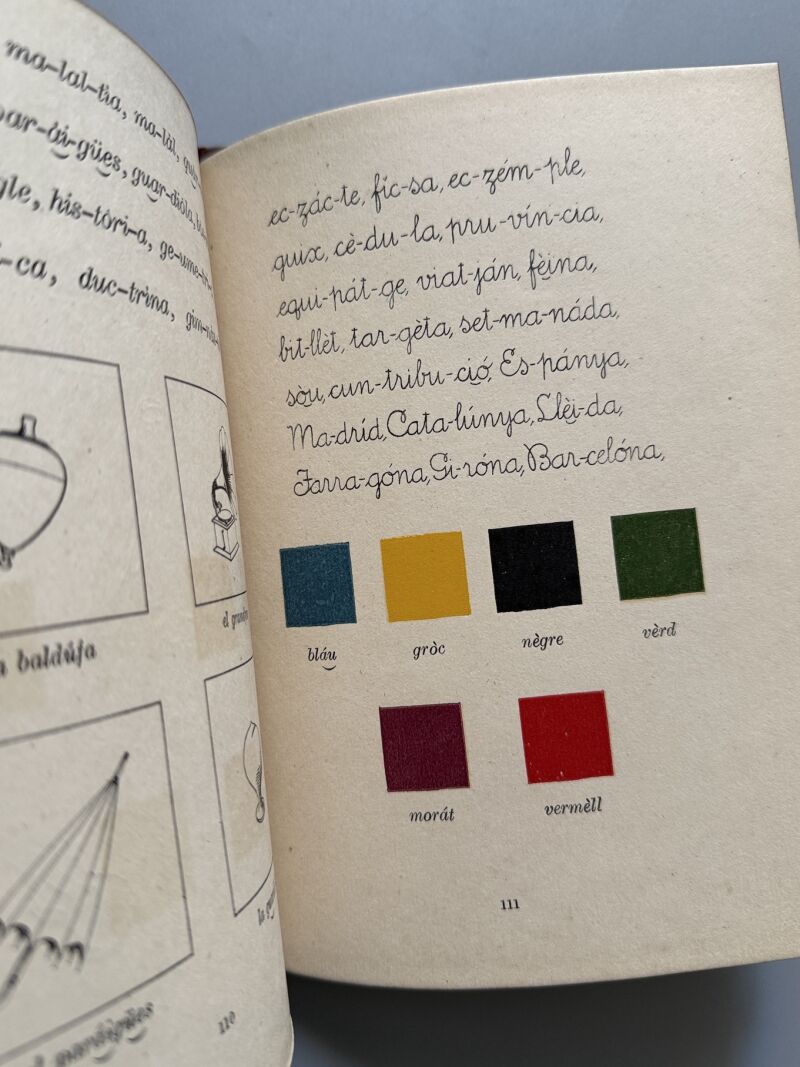 ma-lal-tia, ma-làl,
par-ài-gües, guar-dióla,
his-tòri-a, ge-ume-tr
ca, duc-trina, gim-nà
baldúfa
el
la
el paràigües
110
ec-zác-te, fíc-sa, ec-zém-ple,
guix, cè-du-la, pru-vín-cia,
equi-pát-ge, viat-ján, fèina,
bit-llèt, tar-gèta, set-ma-náda,
sòu, cun-tribu-ció, Es-pánya,
Ma-dríd, Cata-lúnya, Llèi-da,
Tarra-góna, Gi-róna, Bar-celóna,
bláu gròc nègre vèrd
morát vermèll
111